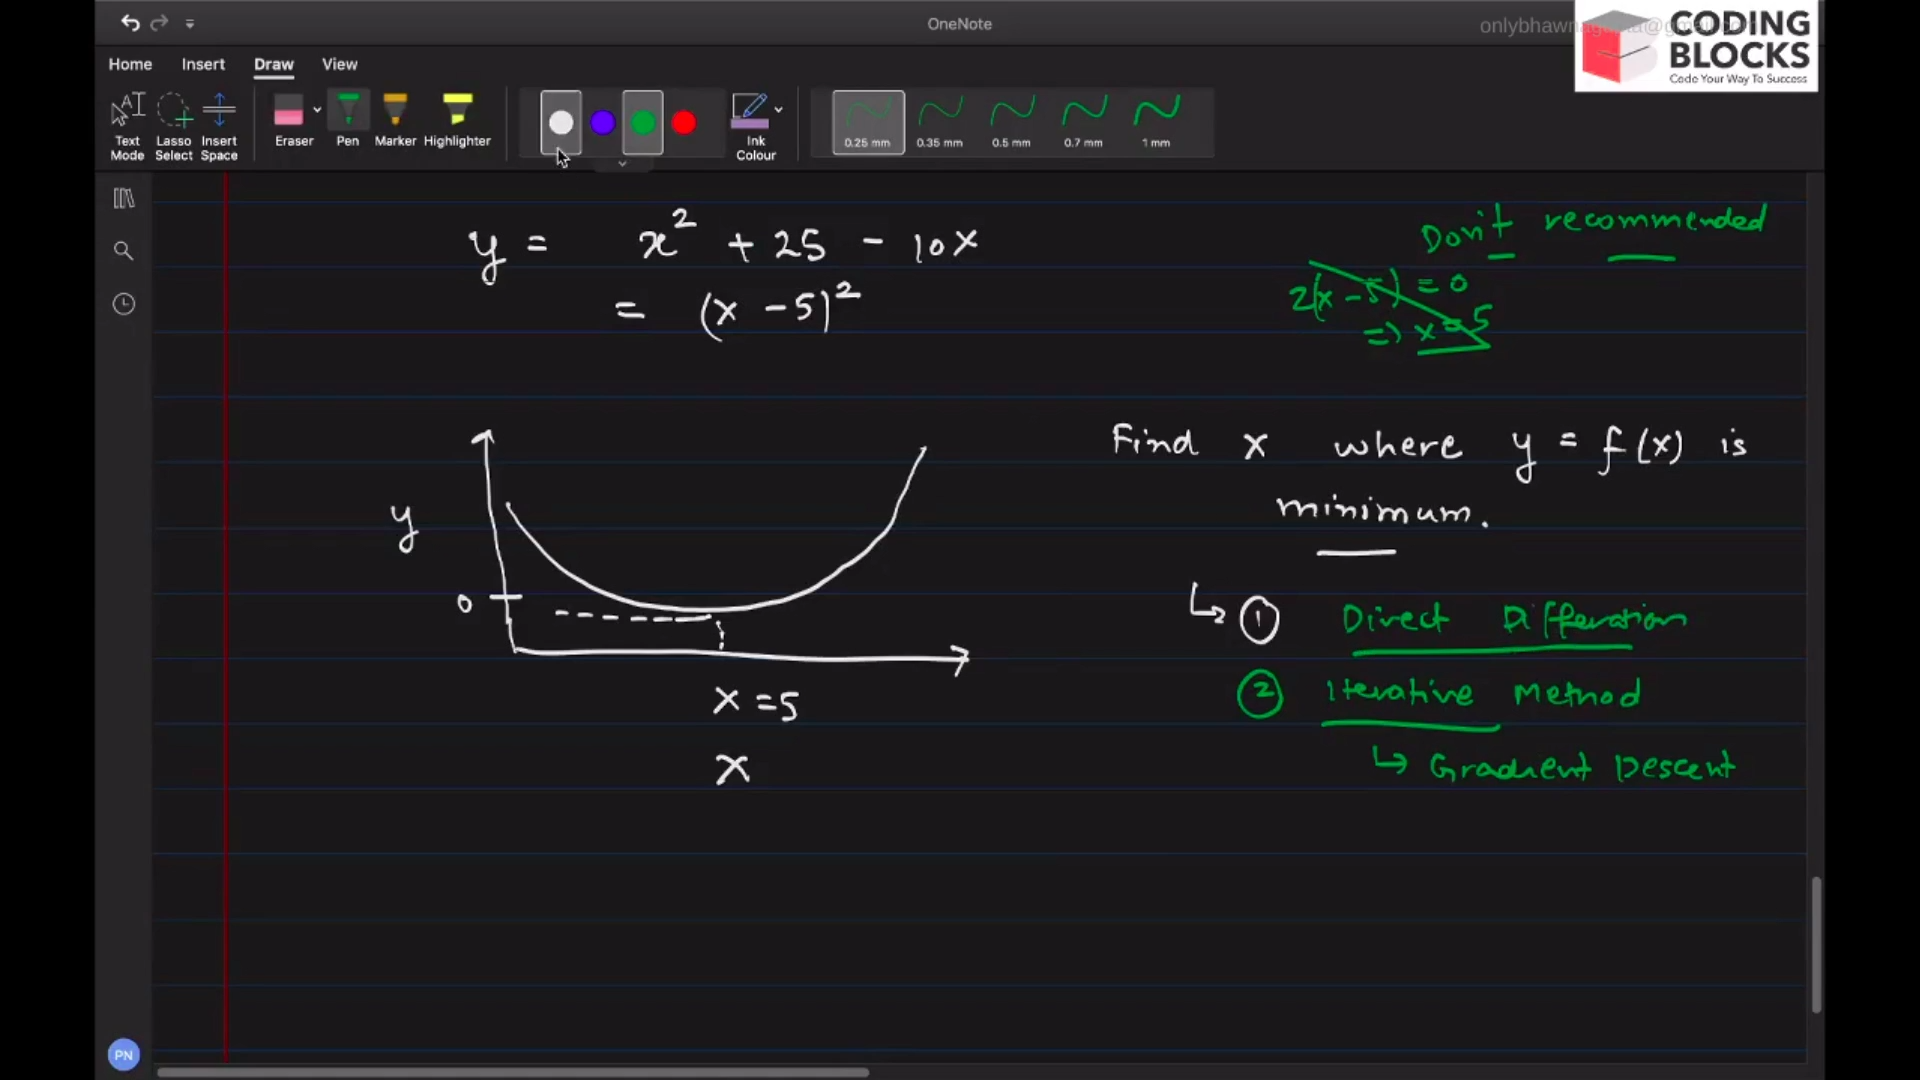 OneNote
onlybhawnagupta@gmail.com
CODING
BLOCKS
Code Your Way To Success
Home Insert Draw View
Text Mode
Lasso Select
Insert Space
Eraser
Pen
Marker
Highlighter
Ink Colour
0.25 mm 0.35 mm 0.5 mm 0.7 mm 1 mm
y = x² + 25 - 10x
= (x - 5)²
Don't recommended
2(x - 5) = 0
=> x = 5
Find x where y = f(x) is
minimum.
y
0
x = 5
x
↳ ① Direct Differation
② Iterative Method
↳ Gradient Descent
PN